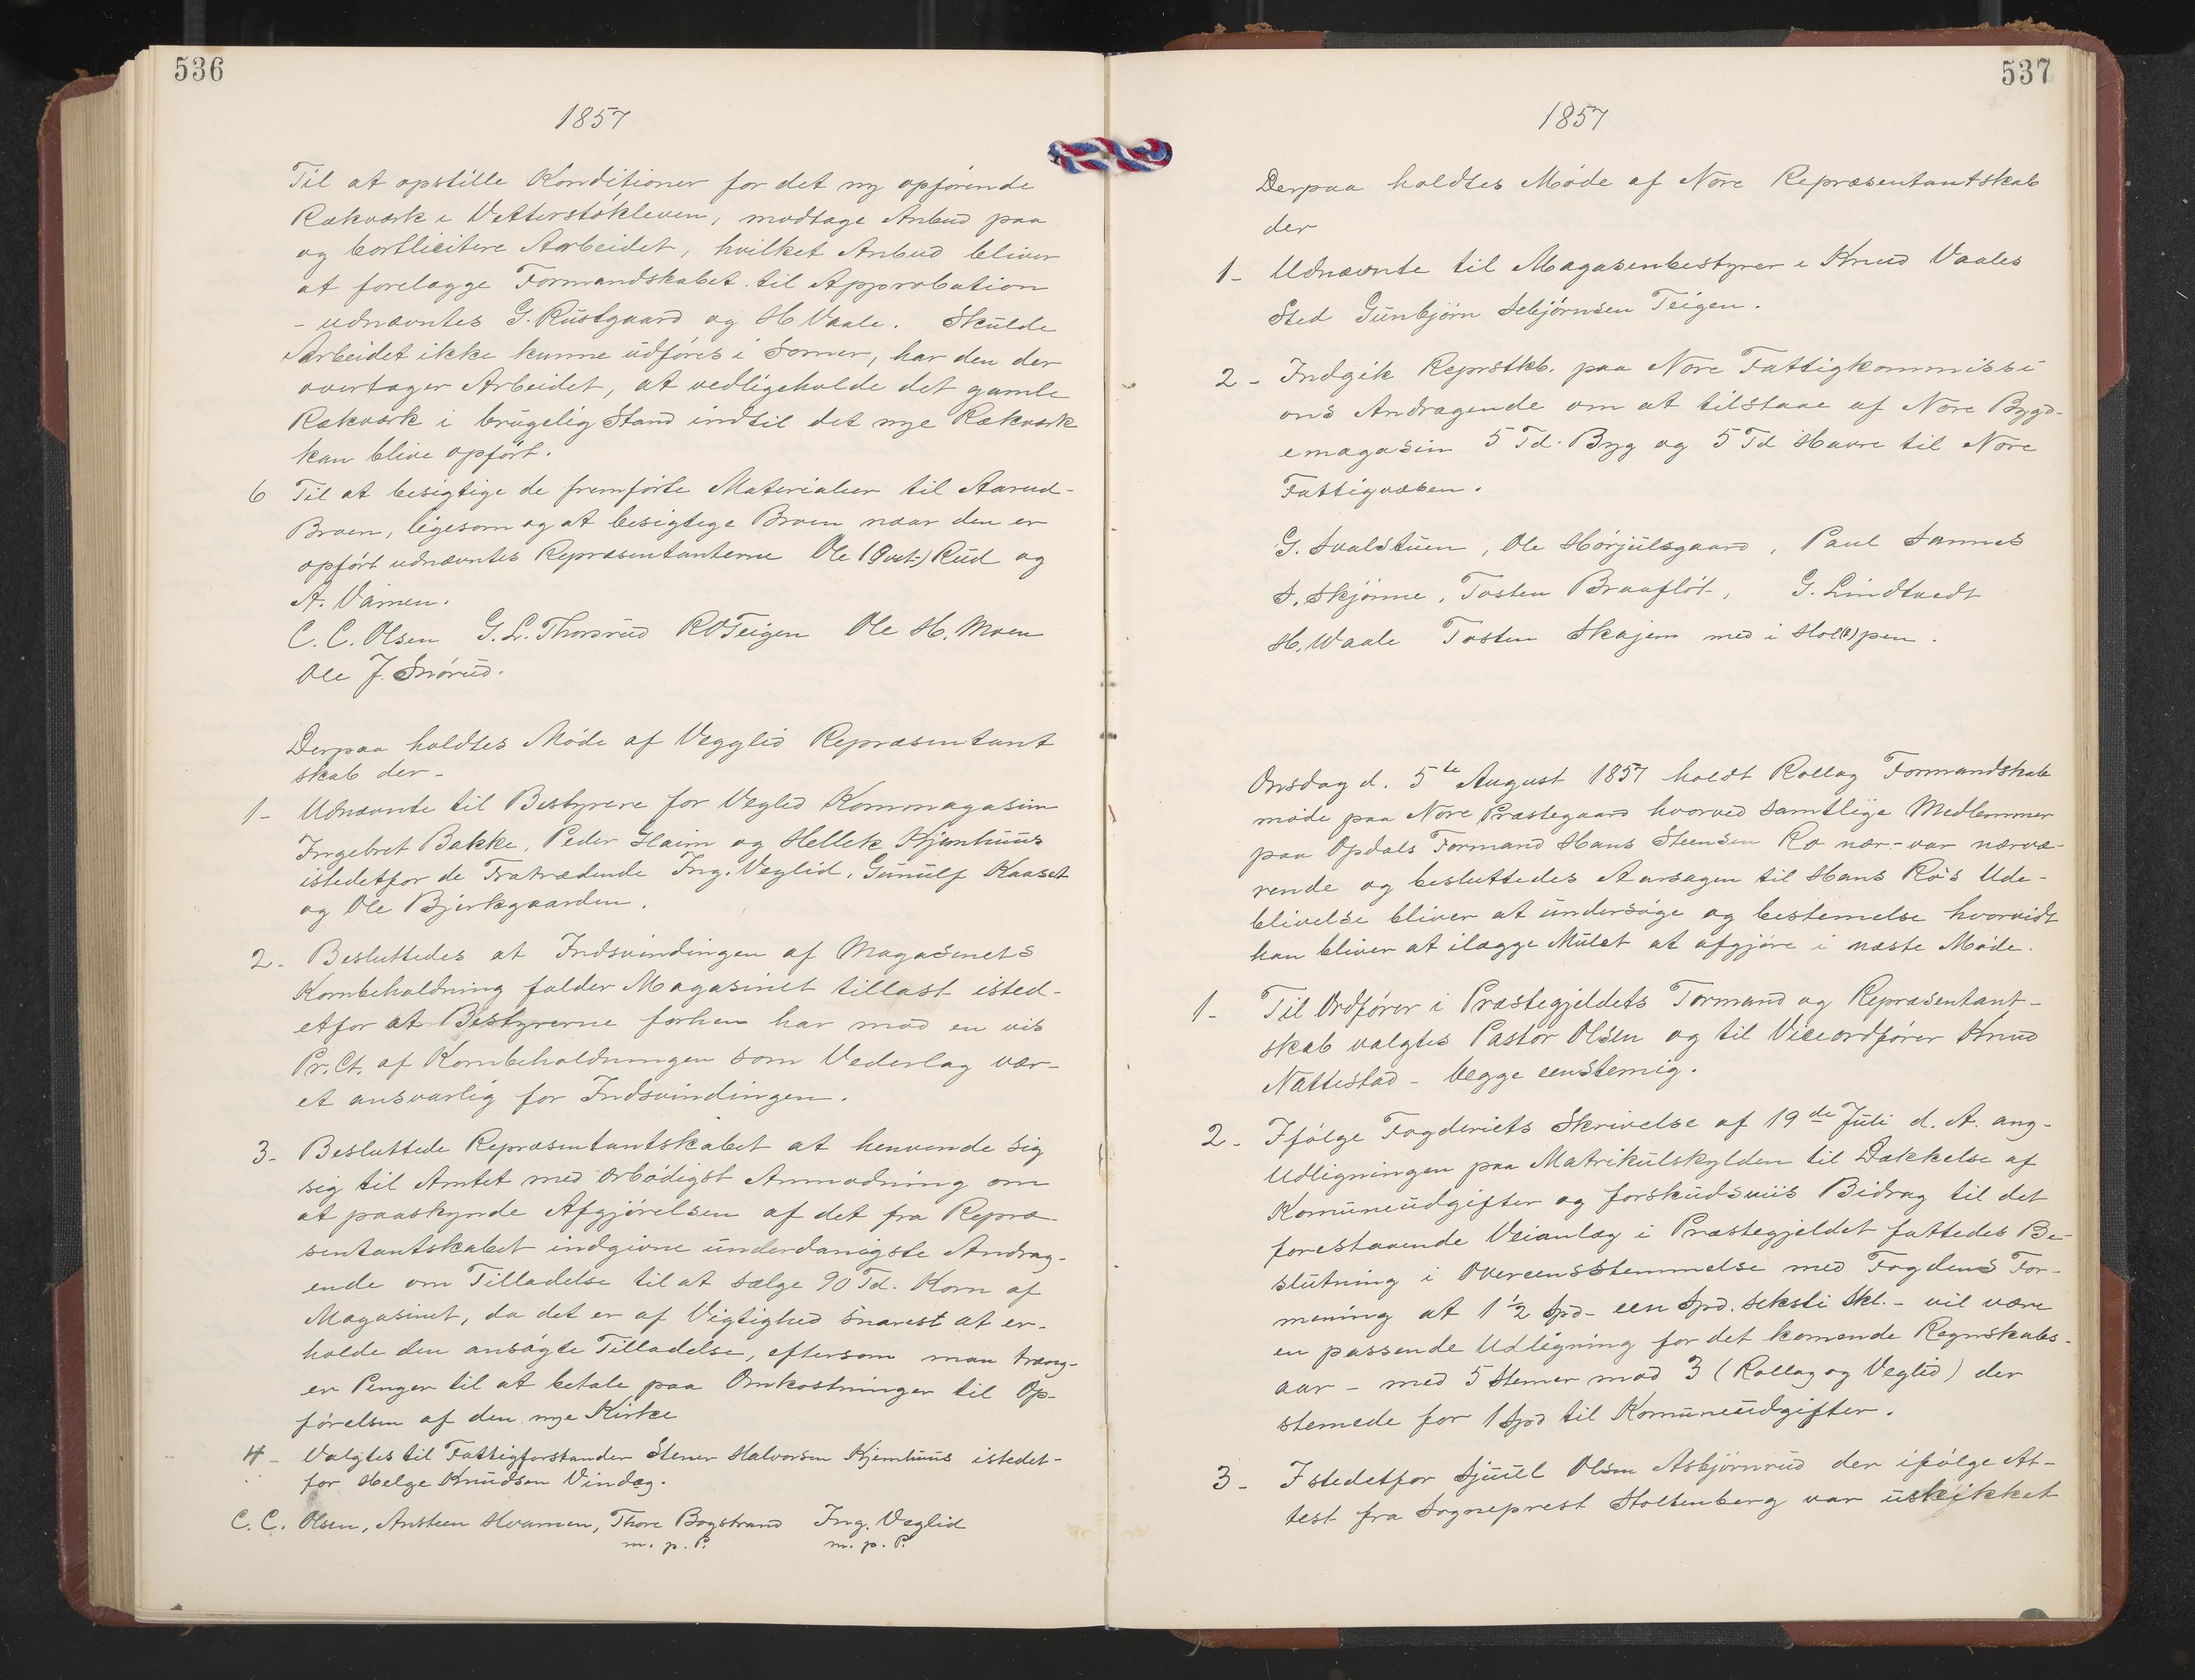 536
1857
Til at opstille Konditioner for det ny opförende
Rækværk i Vetterstökleven, modtage Anbud paa
og bortlicitere Arbeidet, hvilket Anbud bliver
at forelægge Formandskabet til Approbation
- udnævntes G. Rustgaard og H Vaale. Skulde
Arbeidet ikke kunne udföres i Somer, har den der
overtager Arbeidet, at vedligeholde det gamle
Rækværk i brugelig Stand indtil det nye Rækværk
kan blive opfört.
6 Til at besigtige de fremförte Materialier til Aarud-
Broen, ligesom og at besigtige Broen naar den er
opfört udnævntes Repræsentanterne Ole (Qvat-) Rud og
A. Vamen.
C. C. Olsen G. L. Thorsrud R O Teigen Ole H. Moen
Ole J. Snörud.
Derpaa holdtes Möde af Vegglid Repræsentant
skab der -
1- Udnævnte til Bestyrere for Veglid Kornmagasin
Ingebret Bakke, Peder Glaim og Hellek Kjemhuus
istedetfor de Fratrædende Ing. Veglid, Gunulf Kaaset
og Ole Bjerkgaarden.
2- Besluttedes at Indsvindingen af Magasinets
Kornbeholdning falder Magasinet tillast isted-
etfor at Bestyrerne forhen har mod en vis
Pr. Ct. af Kornbeholdningen som Vederlag vær-
et ansvarlig for Indsvindingen.
3- Besluttede Repræsentantskabet at henvende sig
sig til Amtet med ærbödigst Anmodning om
at paaskynde Afgjörelsen af det fra Repræ-
sentantskabet indgivne underdanigste Andrag-
ende om Tilladelse til at sælge 90 Td. Korn af
Magasinet, da det er af Vigtighed snarest at er-
holde den ansögte Tilladelse, eftersom man træng-
er Penger til at betale paa Omkostninger til Op-
förelsen af den nye Kirke
4- Valgtes til Fattigforstander Stener Halvorsen Kjemhuus istedet-
for Helge Knudsen Vindeg.
C. C. Olsen, Ansteen Hvamen, Thore Bogstrand Ing. Veglid
m. p. P. m. p. P.
537
1857
Derpaa holdtes Möde af Nore Repræsentantskab
der
1- Udnævnte til Magasinbestyrer i Knud Vaales
Sted Gunbjörn Sebjörnsen Teigen.
2- Indgik Reprstkb. paa Nore Fattigkommissi
ons Andragende om at tilstaae af Nore Bygd-
emagasin 5 Td. Byg og 5 Td Havre til Nore
Fattigvæsen.
G. Svalstuen, Ole Hörjulsgaard, Paul Sannes
S. Skjönne, Tosten Braaflöt, G. Lindtvedt
H. Waale Tosten Skajem med i Hol(?)pen.
Onsdag d. 5te August 1857 holdt Rollag Formandskab
möde paa Nore Præstegaard hvorved samtlige Medlemmer
paa Opdals Formand Hans Steensen Ro nær- var nærvæ-
rende og besluttedes Aarsagen til Hans Ro's Ude-
blivelse bliver at undersöge og bestemelse hvorvidt
han bliver at ilægge Mulct at afgjöre i næste Möde.
1- Til Ordförer i Præstegjeldets Formand og Repræsentant-
skab valgtes Pastor Olsen og til Viceordförer Knud
Nattestad - begge eenstemig.
2- Ifölge Fogderiets Skrivelse af 19de Juli d. A. ang-
Udligningen paa Matrikulskylden til Dækkelse af
Komuneudgifter og forskudsviis Bidrag til det
forestaaende Veianlæg i Præstegjeldet fattedes Be-
slutning i Overeensstemmelse med Fogdens For-
mening at 1 1/2 Spd- een Spd. seksti Skl. - vil være
en passende Udligning for det komende Regnskabs-
aar - med 5 Stemer mod 3 (Rollag og Veglid) der
stemede for 1 Spd til Komuneudgifter.
3- Istedetfor Sjuul Olsen Asbjörnrud der ifölge At-
test fra Sogneprest Stoltenberg var uskikket